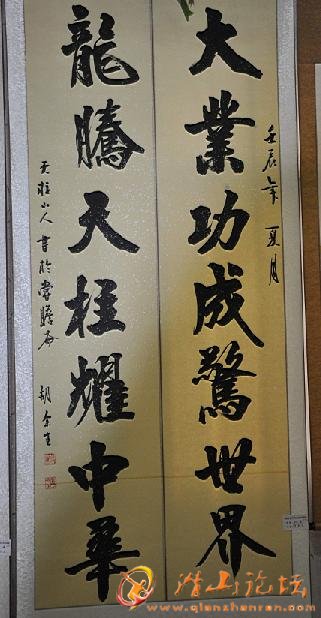 壬辰年 夏月
大業功成驚世界
龍騰天柱耀中華
天柱山人 書於
胡
潜山论坛
www.qianshanren.com